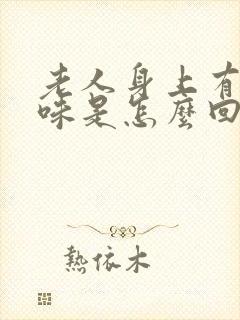 老人身上有
味是怎麼回
熱依木